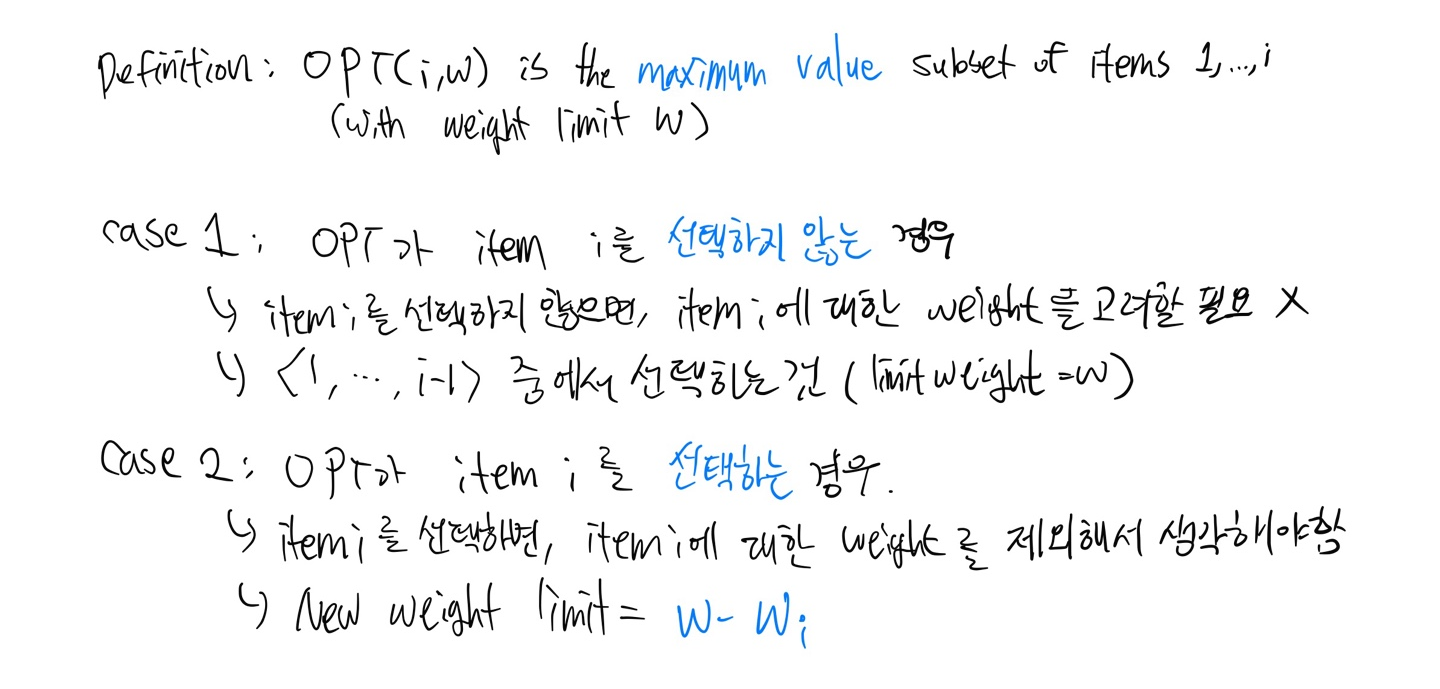 Definition: OPT(i,w) is the maximum value subset of items 1,...,i
(with weight limit w)
case 1: OPT가 item i를 선택하지 않는 경우
↳ item i를 선택하지 않으면, item i에 대한 weight를 고려할 필요 X
↳ <1, ..., i-1> 중에서 선택하는 것 (limit weight = w)
Case 2: OPT가 item i를 선택하는 경우.
↳ item i를 선택하면, item i에 대한 weight를 제외해서 생각해야함
↳ New weight limit = w - wi